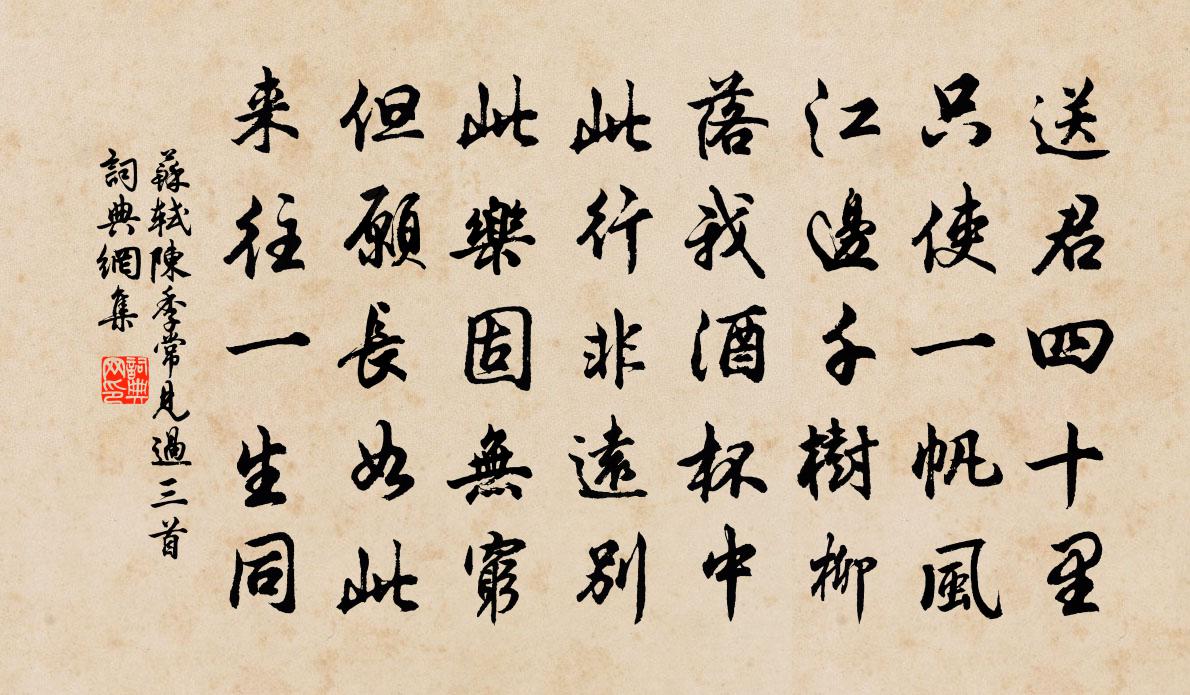 送君四十里
只使一帆風
江邊千樹柳
落我酒杯中
此行非遠別
此樂固無窮
但願長如此
来往一生同
蘇軾陳季常見過三首
詞典網集
詞典网印